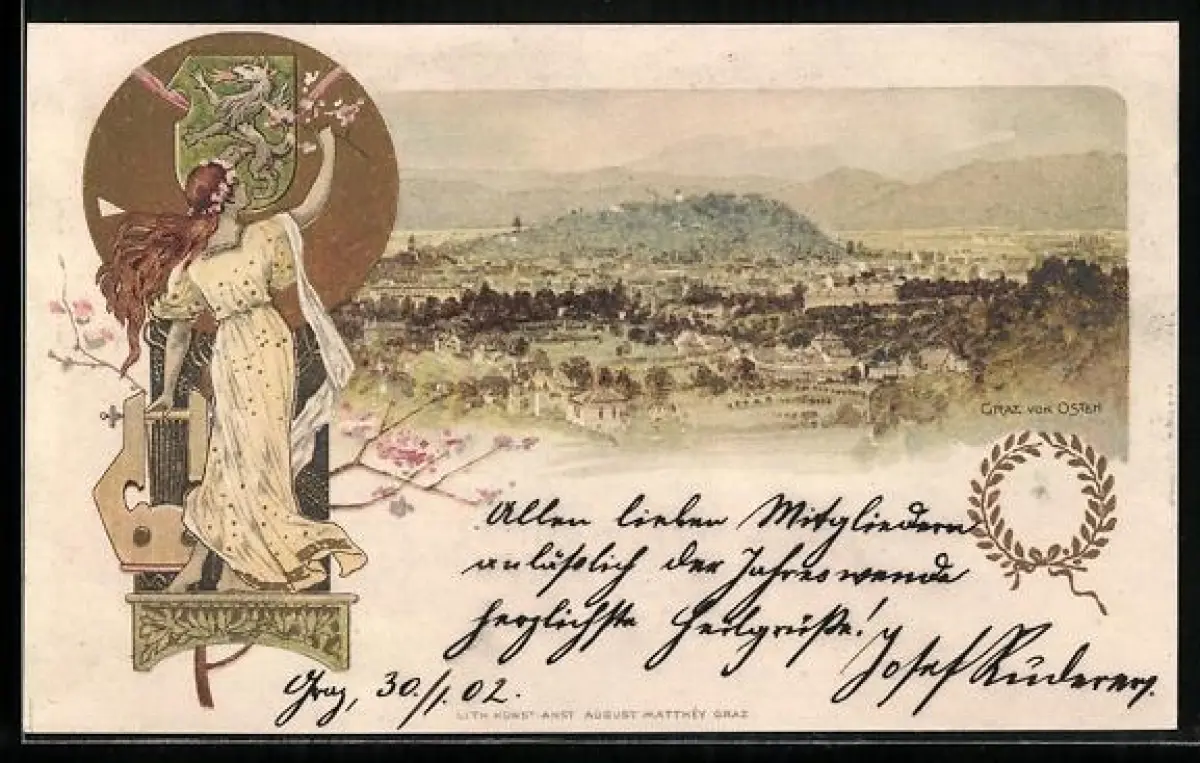 GRAZ VON OSTEN
Allen lieben Mitgliedern
anläßlich der Jahreswende
herzlichste Heilgrüße!
Josef Ruderer
Graz, 30./1. 02.
LITH. KUNST-ANST. AUGUST MATTHEY GRAZ